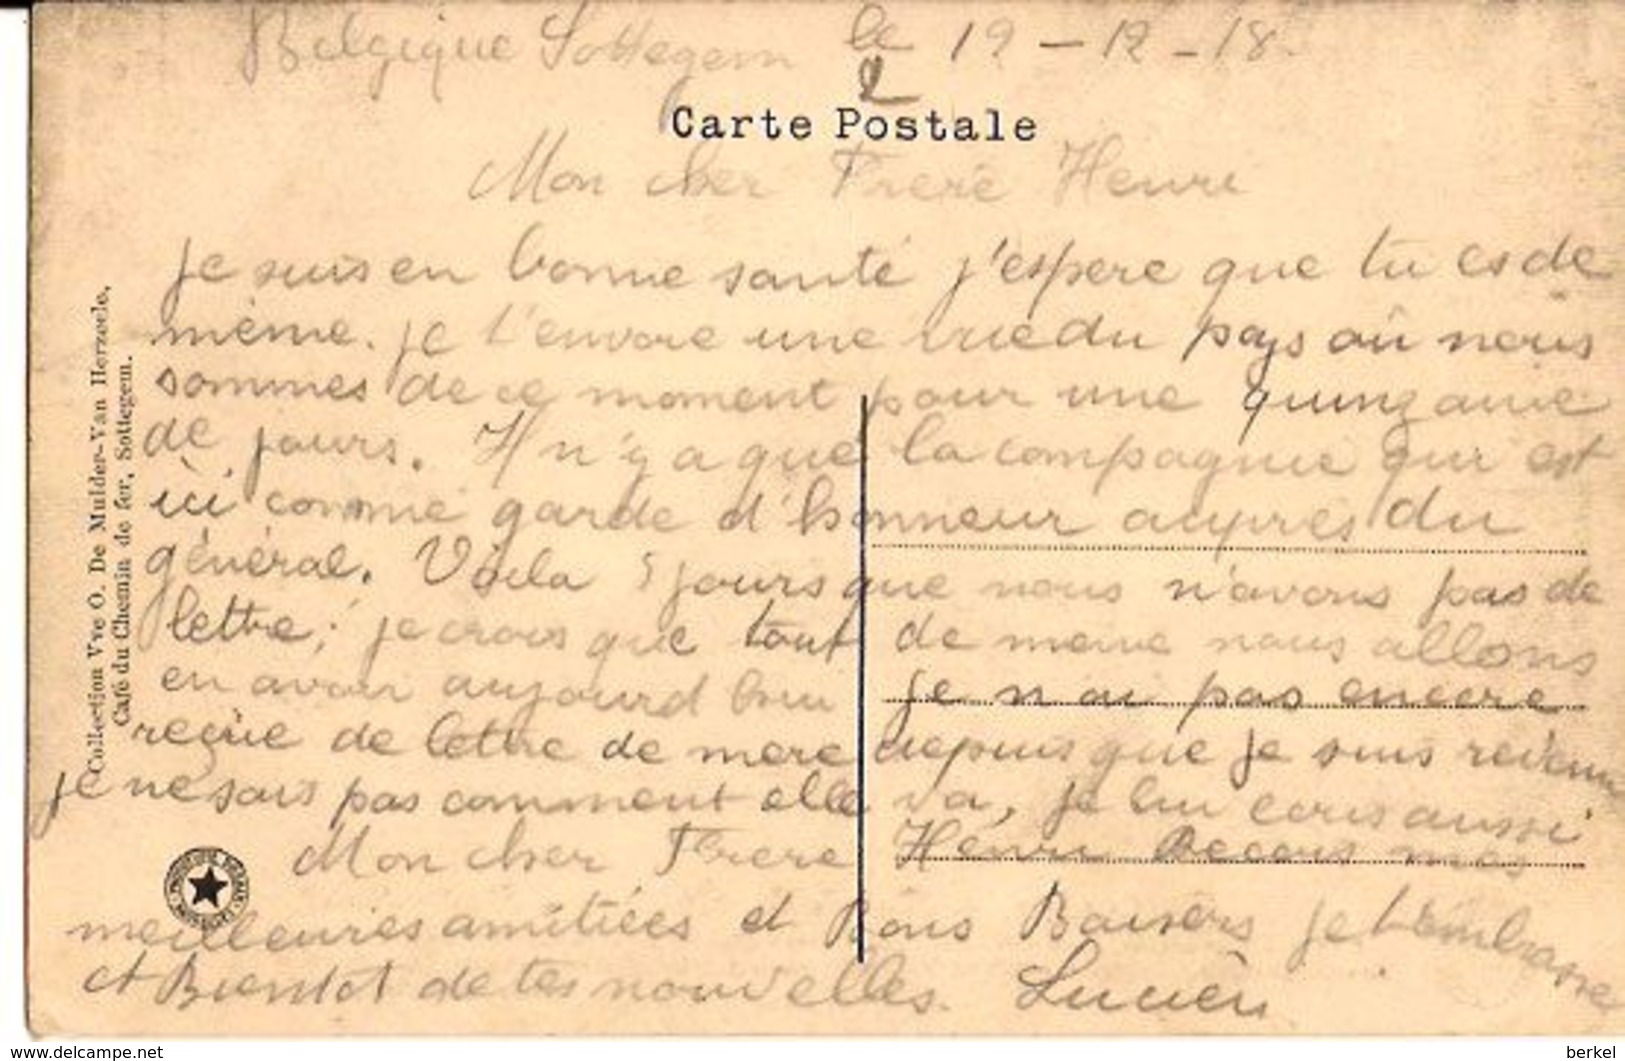 Belgique Sottegem le 19-12-18
2
Carte Postale
Mon cher Frere Henri
je suis en bonne santé j'espere que tu es de
même. je t'envoie une vue du pays où nous
sommes de ce moment pour une quinzaine
de jours. Il n'y a que la compagnie qui est
ici comme garde d'honneur aupres du
général. Voila 5 jours que nous n'avons pas de
lettre; je crois que tout de meme nous allons
en avoir aujourd hui je n ai pas encore
reçue de lettre de mere depuis que je suis revenu
je ne sais pas comment elle va, je lui ecris aussi
Mon cher Frere Henri Recois mes
meilleures amitiées et Bons Baisers je t'embrasse
et Bientot de tes nouvelles. Lucien
Collection Vve O. De Mulder-Van Herzeele,
Café du Chemin de fer, Sottegem.
www.delcampe.net
berkel